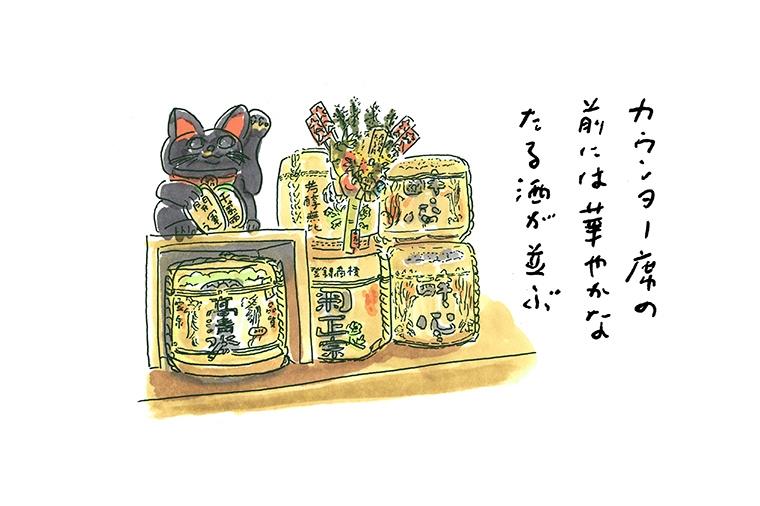 カウンター席の
前には華やかな
たる酒が並ぶ
開運
芳醇無比
酔心
登録商標
菊正宗
酔心
高清水